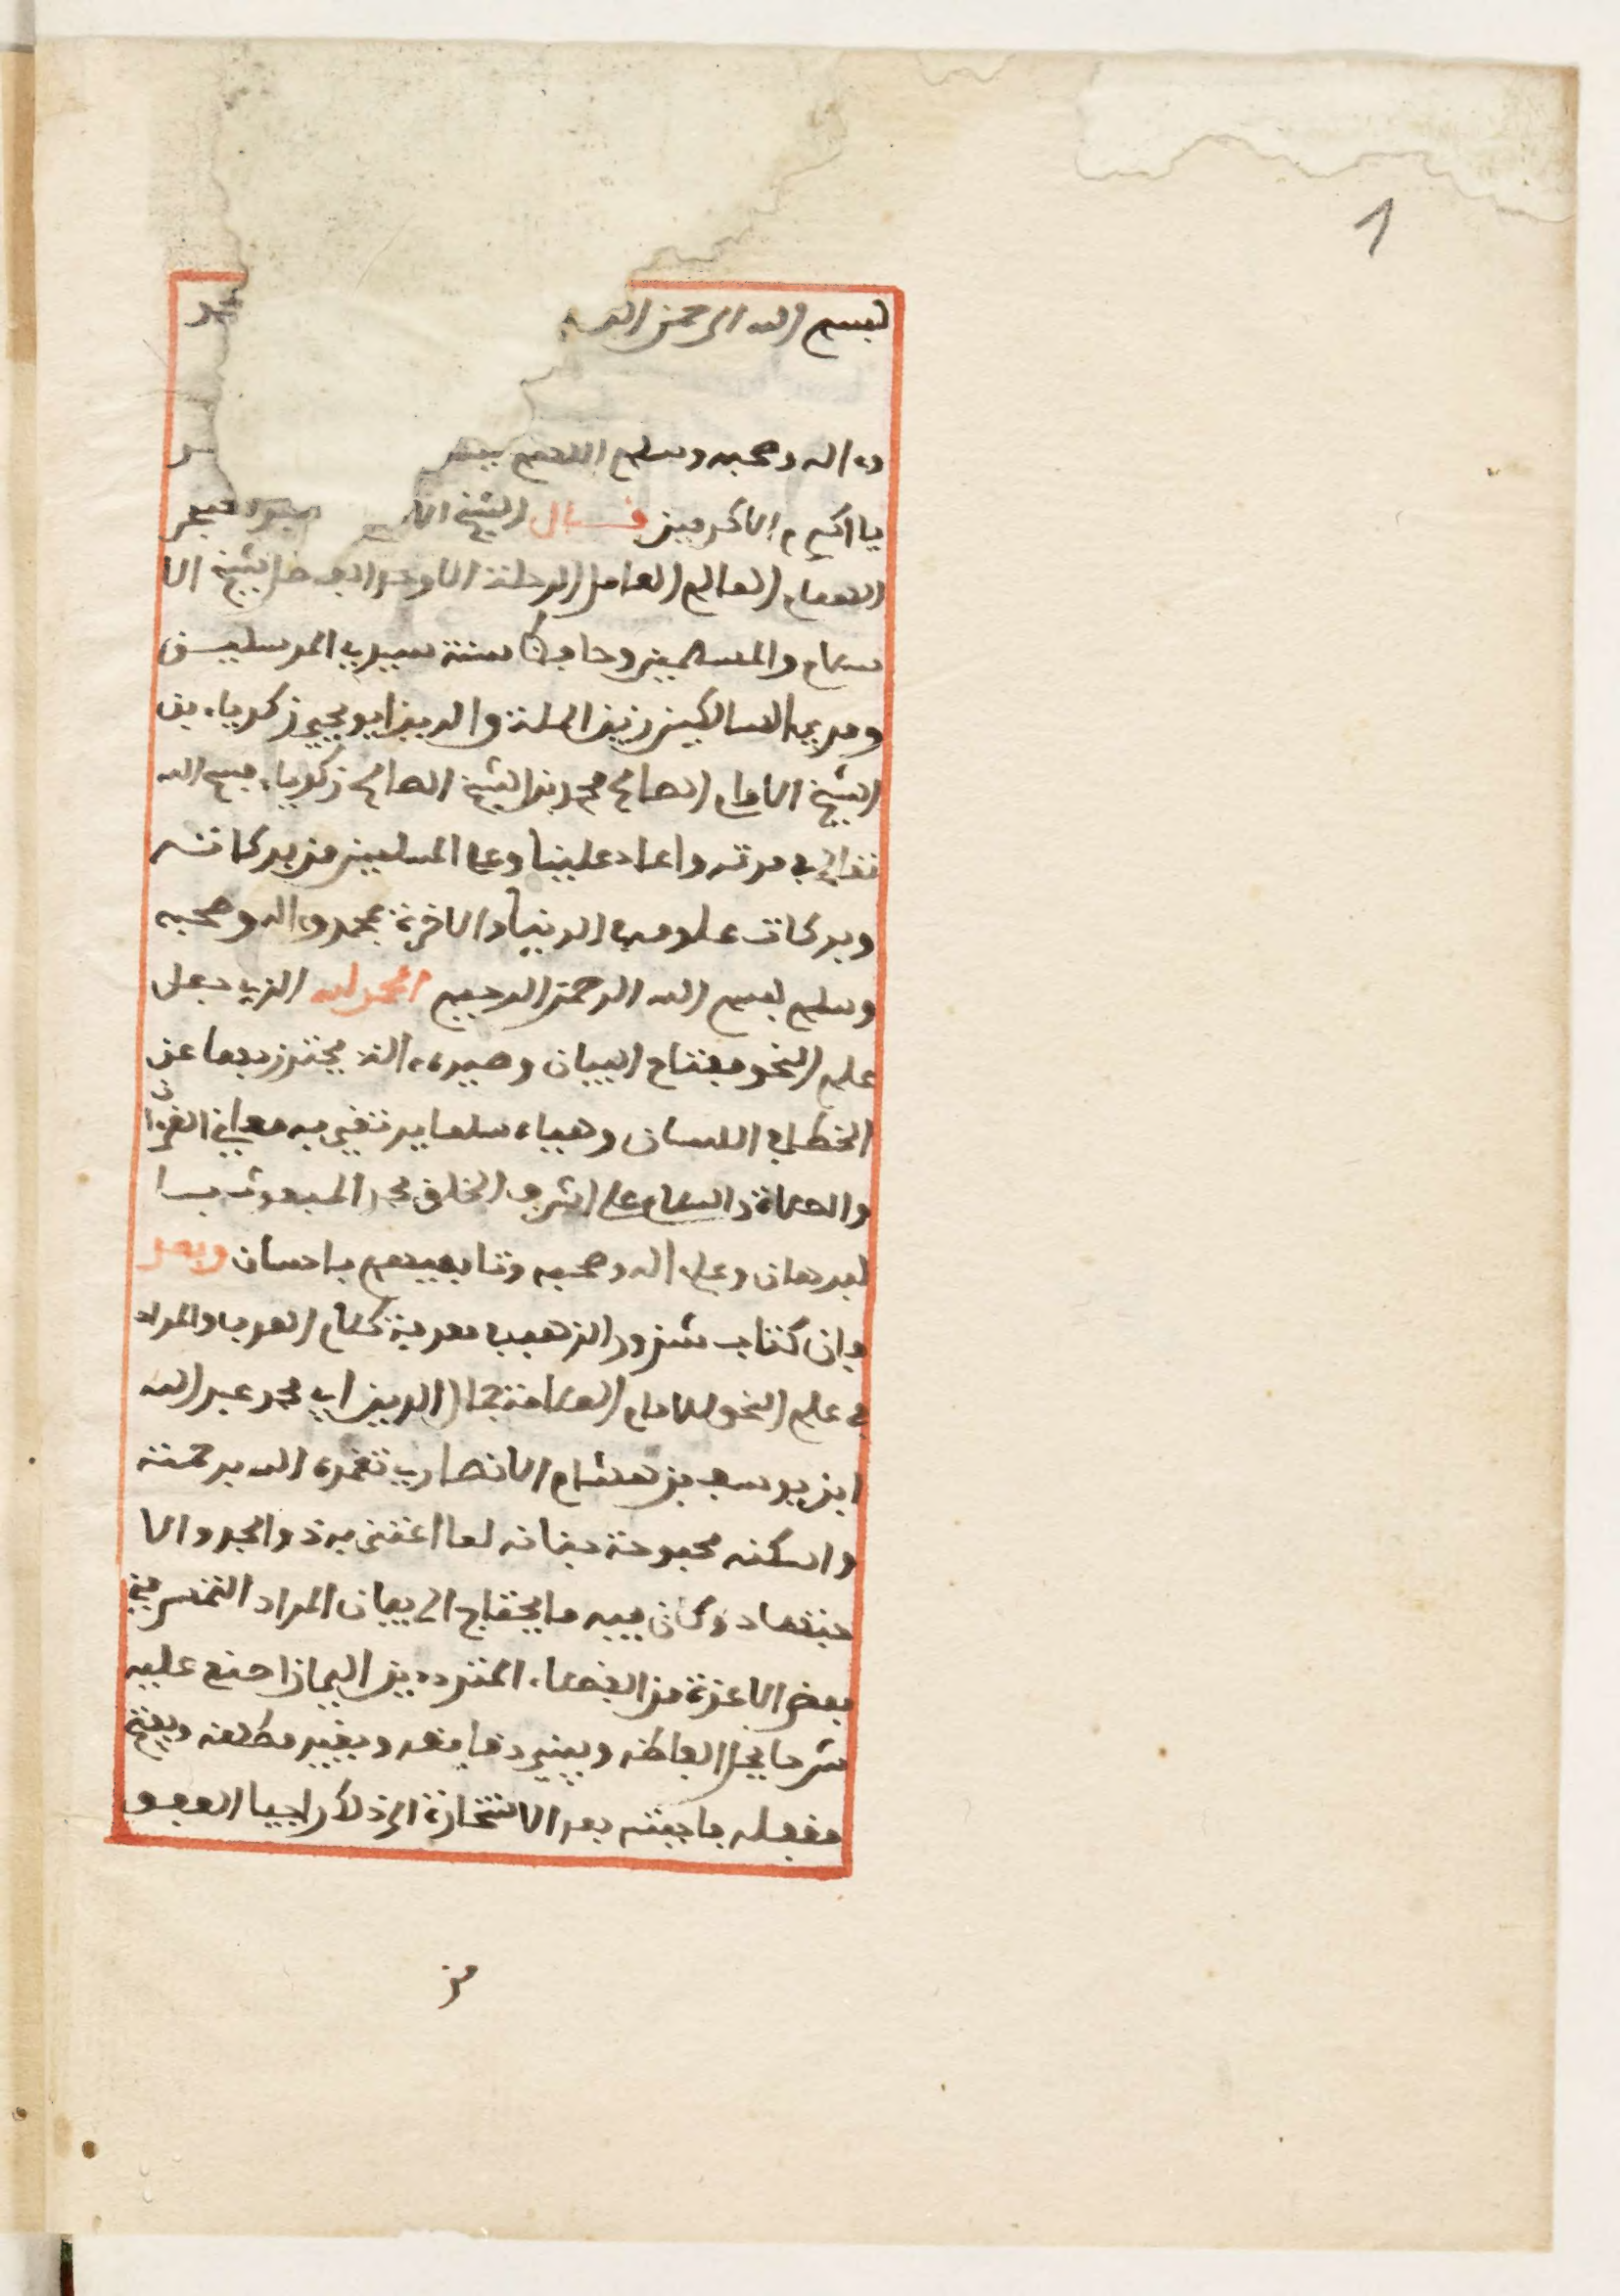 1
بسم الله الرحمن الر
وءاله وصحبه وسلم اللهم يسر
يا اكرم الاكرمين قال الشيخ
الهمام العالم العامل الرحلة الاوحد الفاضل شيخ الا
سلام والمسلمين وحافظ سنة سيد المرسلين
ومربي السالكين زين الملة والدين ابو يحيى زكرياء بن
الشيخ الامام الصالح محمد بن الشيخ الصالح زكرياء فسح الله
تعالى في مدته واعاد علينا وعلى المسلمين من بركاته
وبركات علومه في الدنيا والاخرة بمحمد وءاله وصحبه
وسلم بسم الله الرحمن الرحيم الحمد لله الذي جعل
علم النحو مفتاح البيان وصيره ءالة يحترز بها عن
الخطإ في اللسان وهيأه سلما يرتقي به معاني القرءان
والصلاة والسلام على اشرف الخلق محمد المبعوث بسا
لبرهان وعلى ءاله وصحبه وتابعيهم باحسان وبعد
فان كتاب شذور الذهب في معرفة كلام العرب والمراد
في علم النحو للامام العلامة جمال الدين ابي محمد عبد الله
ابن يوسف بن هشام الانصاري تغمده الله برحمته
واسكنه بحبوحة جنانه لما اعتنى به ذووا الجد والا
جتهاد وكان فيه ما يحتاج الى بيان المراد التمس مني
بعض الاعزة من الفضلاء المترددين الي ان اصنع عليه
شرحا يحل الفاظه ويبين دقايقه ويقيد مطلقه ويفتح
مقفله فاجبته بعد الاستخارة الى ذلك راجيا العفو
من